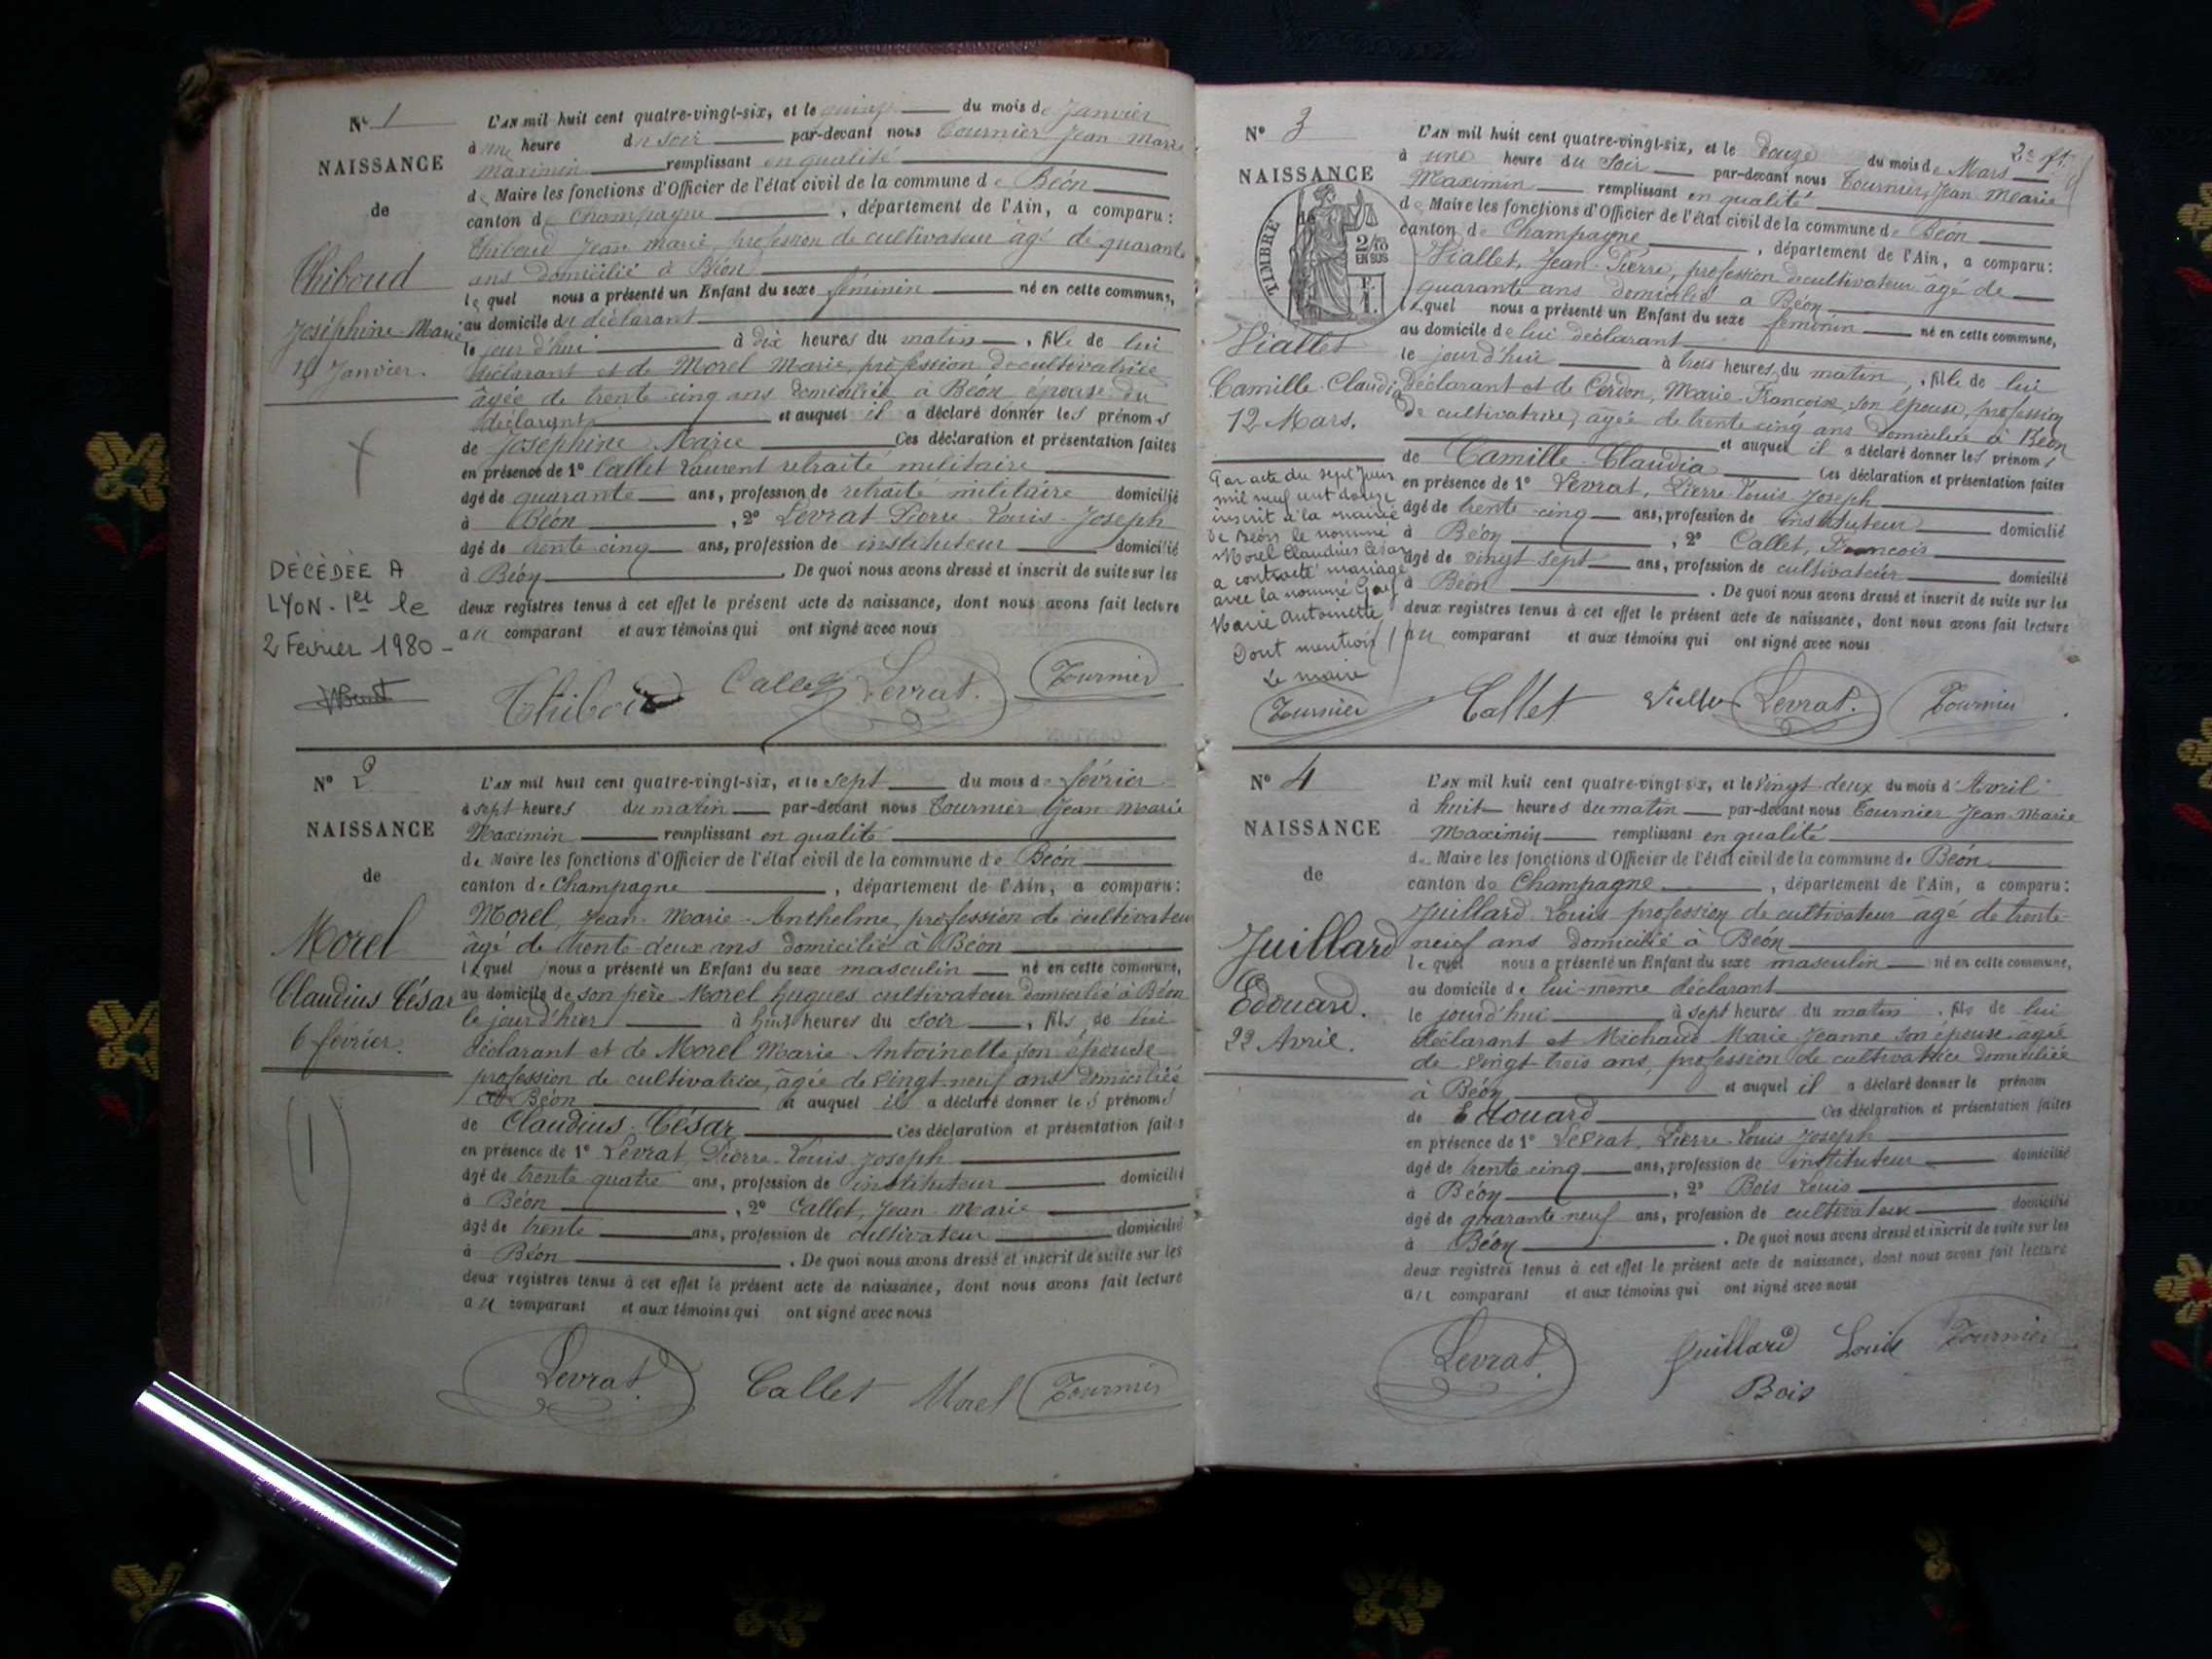 N° 1
NAISSANCE
de
Thiboud
Joséphine-Marie
Janvier.
DÉCÉDÉE A
LYON-1er le
2 Février 1980-
L'AN mil huit cent quatre-vingt-six, et le quinze du mois de Janvier
à une heure du soir par-devant nous Tournier Jean Marie
Maximin remplissant en qualité
de Maire les fonctions d'Officier de l'état civil de la commune de Béon
canton de Champagne, département de l'Ain, a comparu:
Thiboud Jean Marie, profession de cultivateur âgé de quarante
ans domicilié à Béon
lequel nous a présenté un Enfant du sexe féminin né en cette commune,
au domicile du déclarant
le jour d'hui à dix heures du matin, fille de lui
déclarant et de Morel Marie, profession de cultivatrice
âgée de trente cinq ans domiciliée à Béon épouse du
déclarant et auquel il a déclaré donner les prénoms
de Joséphine Marie Ces déclaration et présentation faites
en présence de 1° Callet Laurent retraité militaire
âgé de quarante ans, profession de retraité militaire domicilié
à Béon, 2° Levrat Pierre Louis Joseph
âgé de trente cinq ans, profession de instituteur domicilié
à Béon. De quoi nous avons dressé et inscrit de suite sur les
deux registres tenus à cet effet le présent acte de naissance, dont nous avons fait lecture
au comparant et aux témoins qui ont signé avec nous
Thiboud Callet Levrat. Tournier
N° 2
NAISSANCE
de
Morel
Claudius César
6 février.
(1)
L'AN mil huit cent quatre-vingt-six, et le sept du mois de février
à sept heures du matin par-devant nous Tournier Jean Marie
Maximin remplissant en qualité
de Maire les fonctions d'Officier de l'état civil de la commune de Béon
canton de Champagne, département de l'Ain, a comparu:
Morel, Jean-Marie-Anthelme, profession de cultivateur
âgé de trente-deux ans domicilié à Béon
lequel nous a présenté un Enfant du sexe masculin né en cette commune,
au domicile de son père Morel Hugues cultivateur domicilié à Béon
le jour d'hier à huit heures du soir, fils de lui
déclarant et de Morel Marie Antoinette son épouse
profession de cultivatrice, âgée de vingt-neuf ans domiciliée
à Béon et auquel il a déclaré donner les prénoms
de Claudius César Ces déclaration et présentation faites
en présence de 1° Levrat, Pierre Louis Joseph
âgé de trente quatre ans, profession de instituteur domicilié
à Béon, 2° Callet, Jean-Marie
âgé de trente ans, profession de cultivateur domicilié
à Béon. De quoi nous avons dressé et inscrit de suite sur les
deux registres tenus à cet effet le présent acte de naissance, dont nous avons fait lecture
au comparant et aux témoins qui ont signé avec nous
Levrat. Callet Morel Tournier
N° 3
NAISSANCE
de
TIMBRE
2/10
EN SUS
F.
1.
Viallet
Camille-Claudia
12 Mars.
Par acte du sept Juin
mil neuf cent douze
inscrit à la mairie
de Béon le nommé
Morel Claudius César
a contracté mariage
avec la nommé
Marie Antoinette
Dont mention
Le maire
Tournier
2e ft.
L'AN mil huit cent quatre-vingt-six, et le douze du mois de Mars
à une heure du soir par-devant nous Tournier, Jean-Marie
Maximin remplissant en qualité
de Maire les fonctions d'Officier de l'état civil de la commune de Béon
canton de Champagne, département de l'Ain, a comparu:
Viallet, Jean-Pierre, profession de cultivateur âgé de
quarante ans domicilié à Béon
lequel nous a présenté un Enfant du sexe féminin né en cette commune,
au domicile de lui déclarant
le jourd'hui à trois heures du matin, fille de lui
déclarant et de Cordon, Marie-Françoise, son épouse, profession
de cultivatrice, âgée de trente cinq ans domiciliée à Béon
et auquel il a déclaré donner les prénoms
de Camille-Claudia Ces déclaration et présentation faites
en présence de 1° Levrat, Pierre-Louis Joseph
âgé de trente cinq ans, profession de instituteur domicilié
à Béon, 2° Callet, François
âgé de vingt sept ans, profession de cultivateur domicilié
à Béon. De quoi nous avons dressé et inscrit de suite sur les
deux registres tenus à cet effet le présent acte de naissance, dont nous avons fait lecture
au comparant et aux témoins qui ont signé avec nous
Callet Viallet Levrat. Tournier
N° 4
NAISSANCE
de
Juillard
Edouard.
22 Avril.
L'AN mil huit cent quatre-vingt-six, et le vingt-deux du mois d'Avril
à huit heures du matin par-devant nous Tournier Jean-Marie
Maximin remplissant en qualité
de Maire les fonctions d'Officier de l'état civil de la commune de Béon
canton de Champagne, département de l'Ain, a comparu:
Juillard Louis profession de cultivateur âgé de trente-
neuf ans domicilié à Béon
lequel nous a présenté un Enfant du sexe masculin né en cette commune,
au domicile de lui-même déclarant
le jourd'hui à sept heures du matin, fils de lui
déclarant et Michaud Marie Jeanne son épouse âgée
de vingt-trois ans, profession de cultivatrice domiciliée
à Béon et auquel il a déclaré donner le prénom
de Edouard Ces déclaration et présentation faites
en présence de 1° Levrat, Pierre-Louis Joseph
âgé de trente cinq ans, profession de instituteur domicilié
à Béon, 2° Bois Louis
âgé de quarante neuf ans, profession de cultivateur domicilié
à Béon. De quoi nous avons dressé et inscrit de suite sur les
deux registres tenus à cet effet le présent acte de naissance, dont nous avons fait lecture
au comparant et aux témoins qui ont signé avec nous
Levrat. Juillard Louis Tournier
Bois